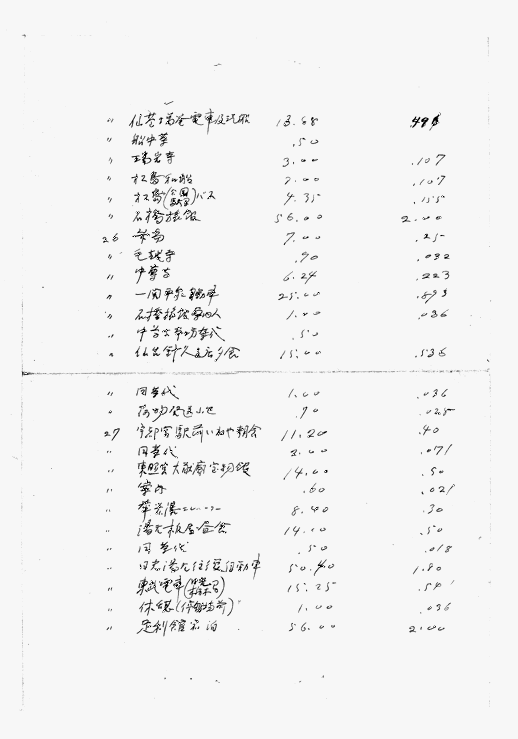 〃 仙台塩釜電車及汽船 13.68 .49
〃 船中茶 .50
〃 瑞岩寺 3.00 .107
〃 松島和船 3.00 .107
〃 松島(公園)バス 4.35 .155
〃 石橋旅館 56.00 2.00
26 茶 7.00 .25
〃 毛越寺 .90 .032
〃 中尊寺 6.24 .223
〃 一関平泉自動車 25.00 .893
〃 石橋旅館 人 1.00 .036
〃 中尊寺 茶代 .50
〃 仙台 支店夕食 15.00 .536
〃 同茶代 1.00 .036
〃 荷物 .70 .025
27 宇都宮駅前いねや朝食 11.20 .40
〃 同茶代 2.00 .071
〃 東照宮大猷廟宝物館 14.00 .50
〃 案内 .60 .021
〃 華厳滝エレベーター 8.40 .30
〃 湯元板屋昼食 14.00 .50
〃 同茶代 .50 .018
〃 日光湯元往復自動車 50.40 1.80
〃 東武電車 15.25 .54
〃 休憩(停留場前) 1.00 .036
〃 足利館宿泊 56.00 2.00